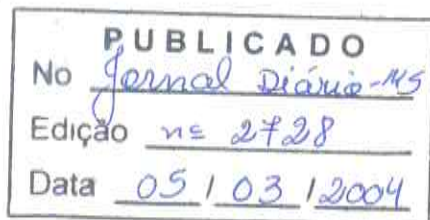 PUBLICADO
No Jornal Diário-MS
Edição nº 2728
Data 05 / 03 / 2004